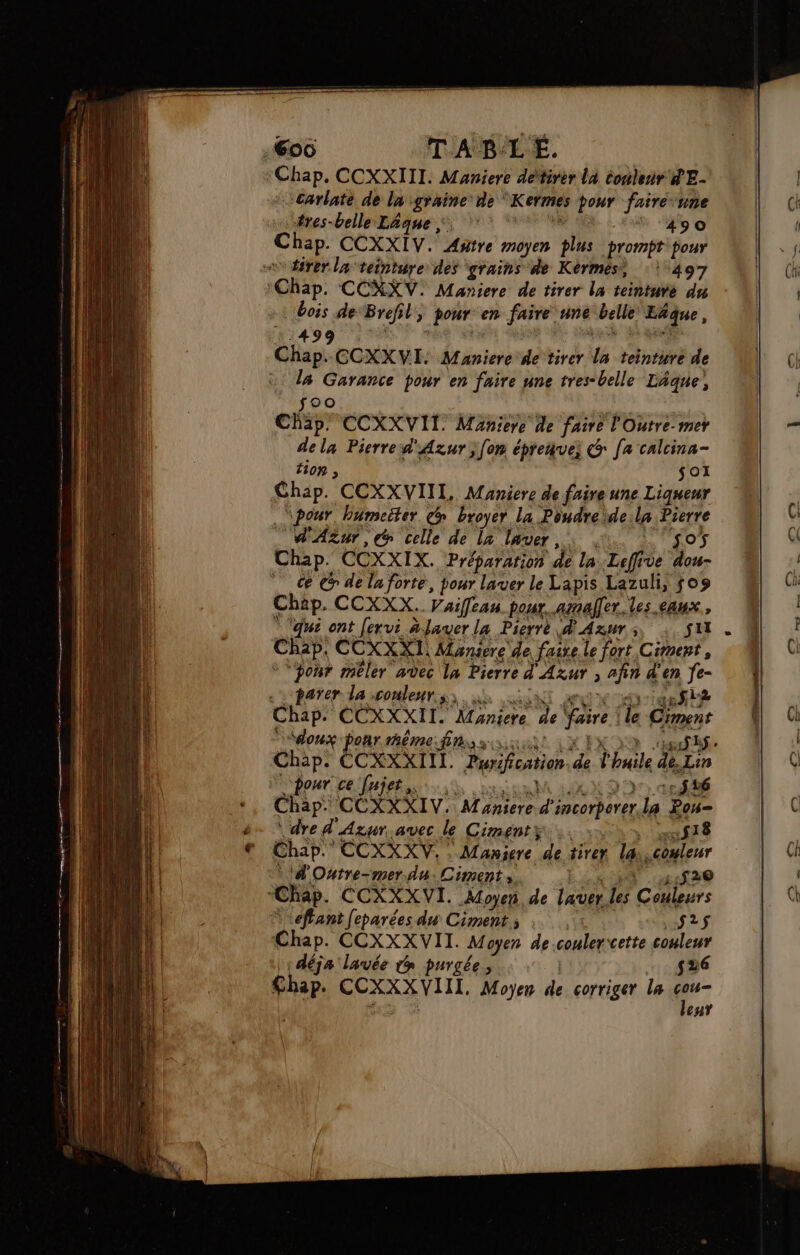 600 TABLE.
Chap. CCXXIII. Maniere de tirer la couleur d'E-
carlate de la graine de Kermes pour faire une
tres-belle Lâque, 490
Chap. CCXXIV. Autre moyen plus prompt pour
tirer la teinture des grains de Kermes, 497
Chap. CCXXV. Maniere de tirer la teinture du
bois de Bresil, pour en faire une belle Lâque,
499
Chap. CCXXVI. Maniere de tirer la teinture de
la Garance pour en faire une tres-belle Lâque,
500
Chap. CCXXVII. Maniere de faire l'Outre-mer
de la Pierre d'Azur, son épreuve, & sa calcina-
tion, 501
Chap. CCXXVIII. Maniere de faire une Liqueur
pour humecter & broyer la Poudre de la Pierre
d'Azur, & celle de la laver, 505
Chap. CCXXIX. Préparation de la Lessive dou-
ce & de la forte, pour laver le Lapis Lazuli, 509
Chap. CCXXX. Vaisseau pour amasser les eaux,
qui ont servi à laver la Pierre d'Azur, 511
Chap. CCXXXI. Maniere de faire le fort Ciment,
pour mêler avec la Pierre d'Azur, afin d'en se-
parer la couleur, 512
Chap. CCXXXII. Maniere de faire le Ciment
doux pour même fin, 515.
Chap. CCXXXIII. Purification de l'huile de Lin
pour ce sujet, 516
Chap. CCXXXIV. Maniere d'incorporer la Pou-
dre d'Azur avec le Ciment, 518
Chap. CCXXXV. Maniere de tirer la couleur
d'Outre-mer du Ciment, 520
Chap. CCXXXVI. Moyen de laver les Couleurs
estant separées du Ciment, 525
Chap. CCXXXVII. Moyen de couler cette couleur
déja lavée & purgée, 526
Chap. CCXXXVIII. Moyen de corriger la cou-
leur